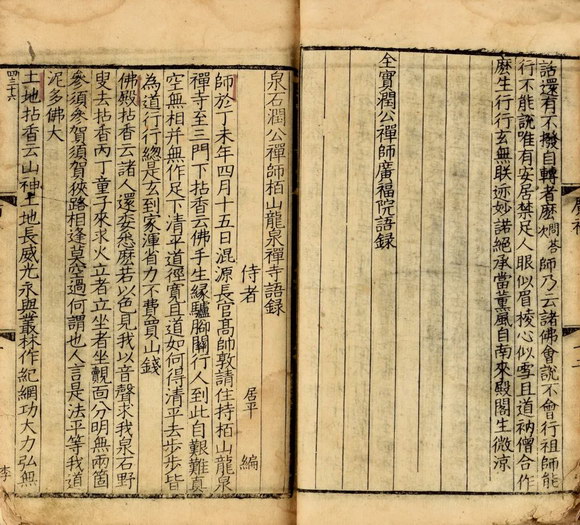 話還有不撥自轉者麽問答師乃云諸佛會說不會行祖師能
行不能說唯有安居禁足人眼似眉棱心似雪且道衲僧合作
麽生行行玄無朕迹妙諾絕承當薰風自南來殿閣生微涼
全寳潤公禪師廣福院語録
泉石潤公禪師栢山龍泉禪寺語録
侍者 居平 編
師於丁未年四月十五日混源長官高師敦請住持栢山龍泉
禪寺至三門下拈香云佛手生縁驢腳關行人到此自艱難真
空無相并無作足下清平道徑寬且道如何得清平去步步皆
為道行行總是玄到家渾省力不費買山錢
佛殿拈香云諸人還委悉麽若以色見我以音聲求我泉石野
叟去拈香丙丁童子來求火立者立坐者坐覿面分明無兩箇
參須參賀須賀狹路相逢莫空過何謂也人言是法平等我道
泥多佛大
土地拈香云山神土地長威光永與叢林作紀綱功大力弘無
四三六
李